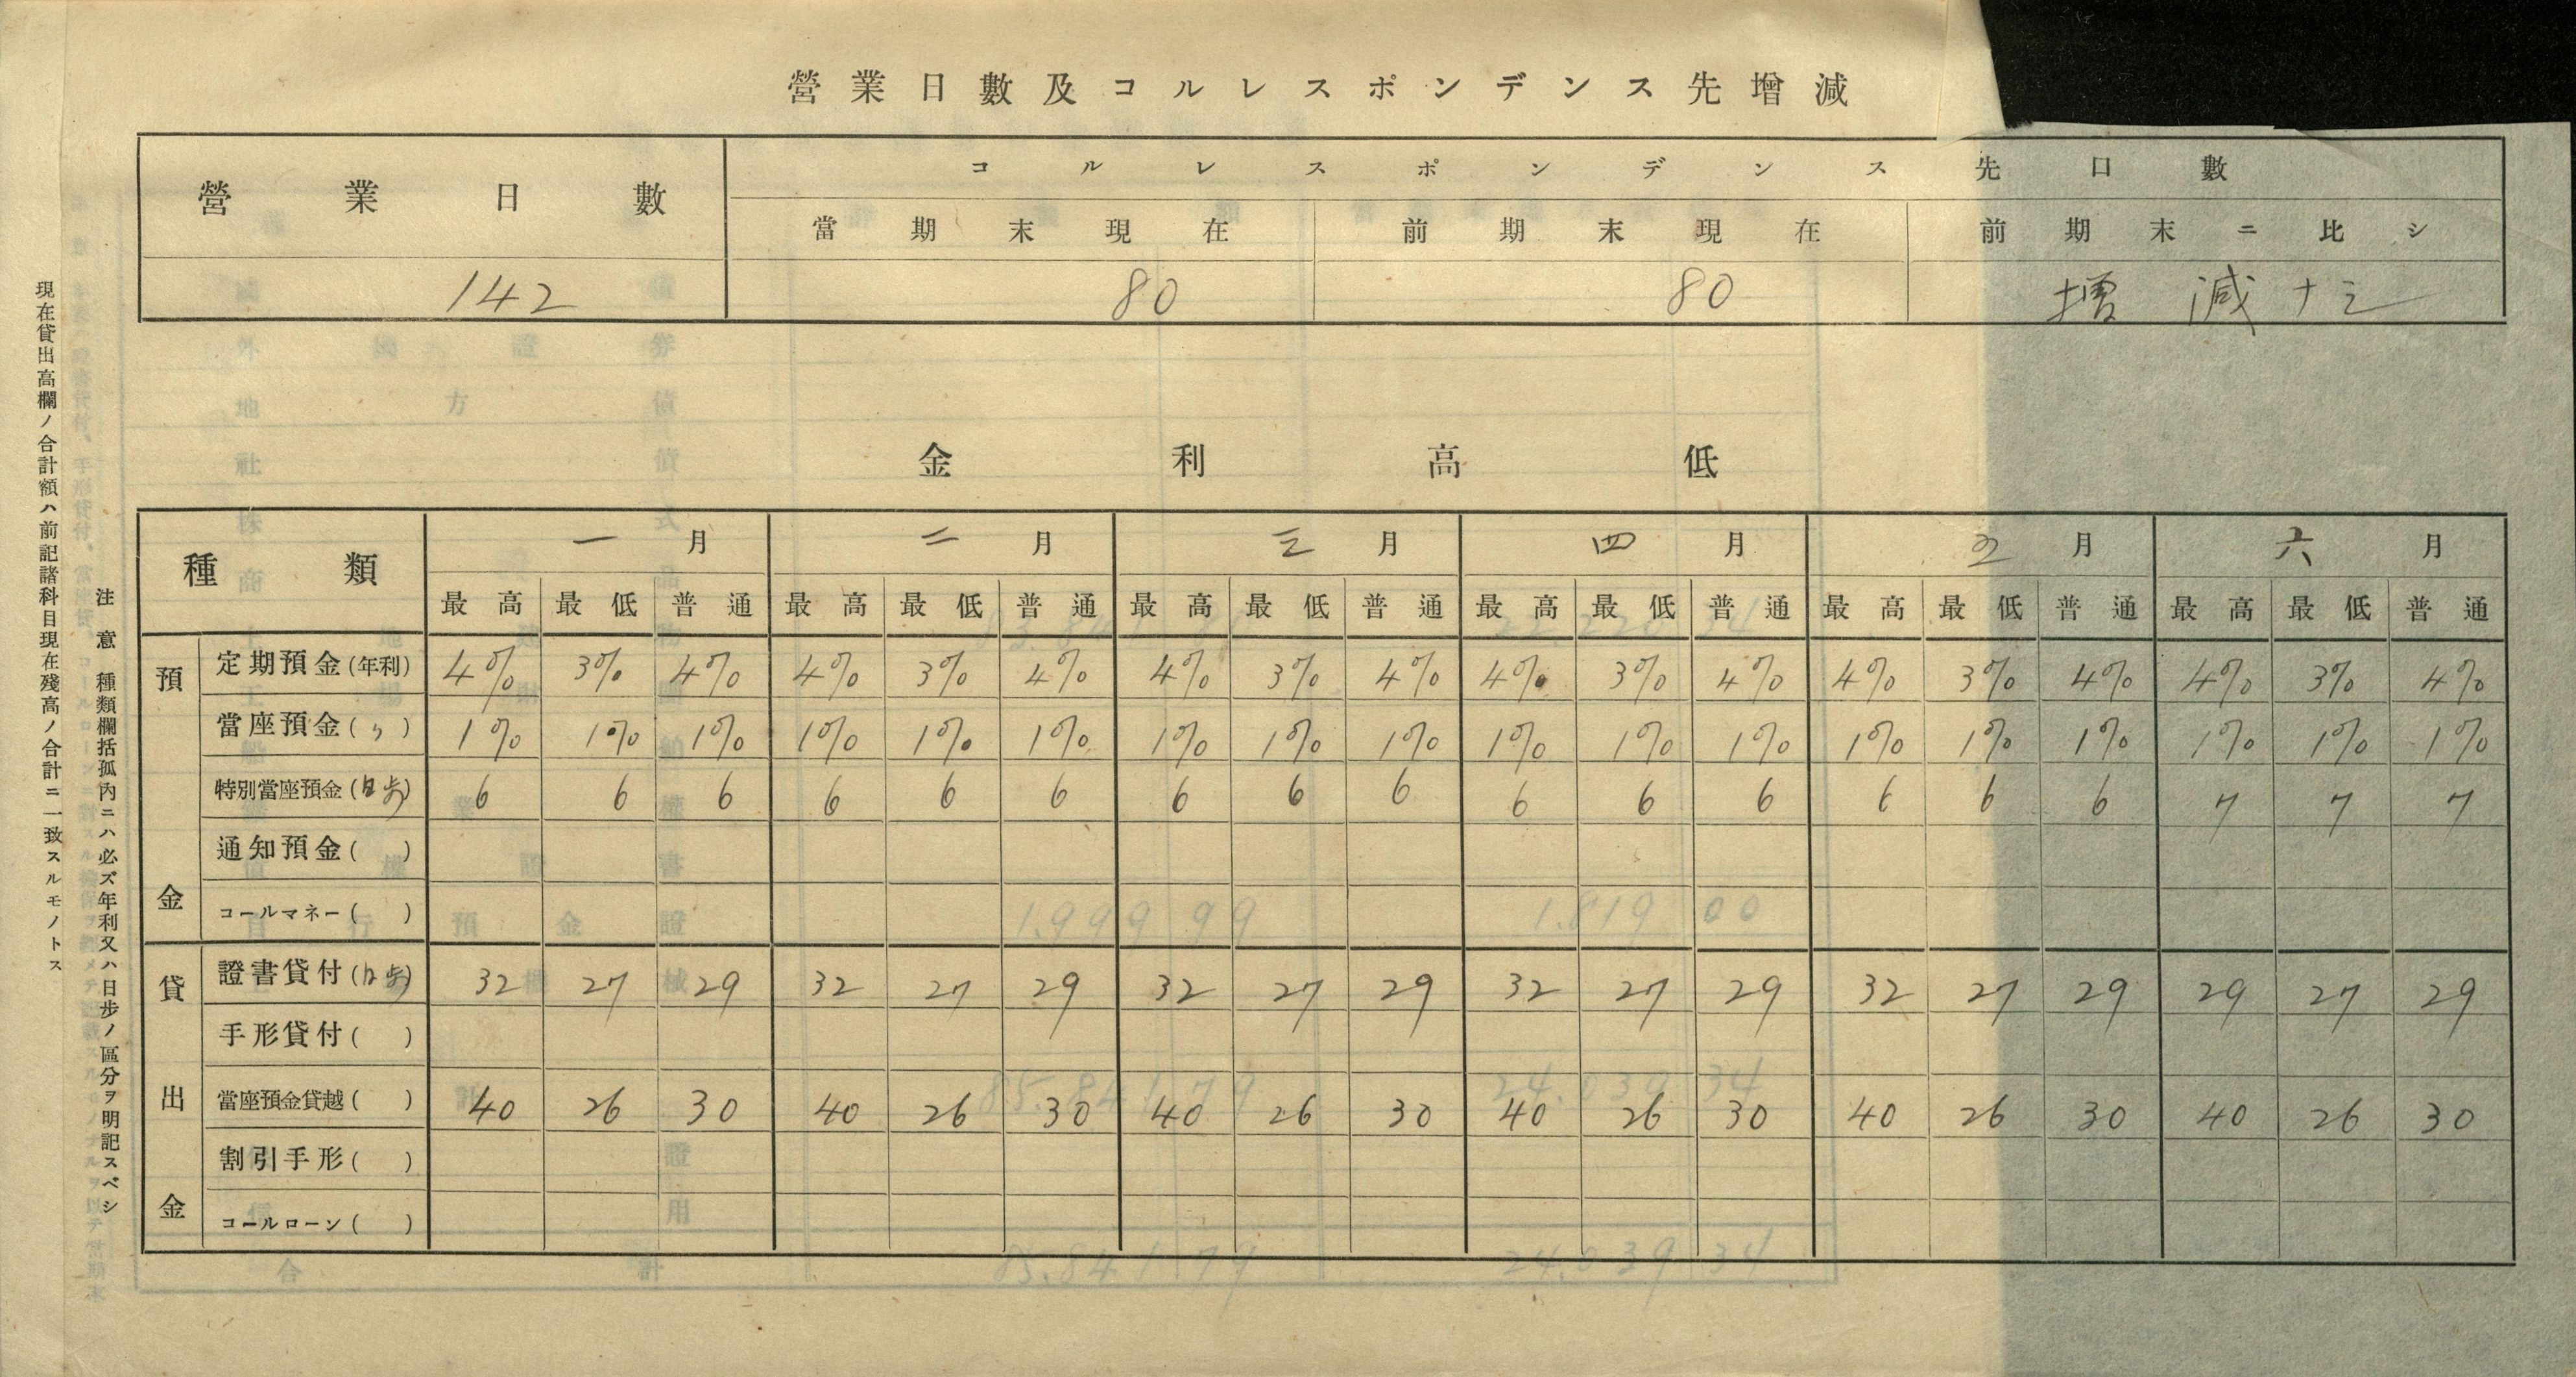 營業日數及コルレスポンデンス先增減
營業日數 コルレスポンデンス先口數
當期末現在 前期末現在 前期末ニ比シ
142 80 80 增減ナシ
金利高低
種類 一月 二月 三月 四月 五月 六月
最高 最低 普通 最高 最低 普通 最高 最低 普通 最高 最低 普通 最高 最低 普通 最高 最低 普通
預金
定期預金(年利) 4% 3% 4% 4% 3% 4% 4% 3% 4% 4% 3% 4% 4% 3% 4% 4% 3% 4%
當座預金(〃) 1% 1% 1% 1% 1% 1% 1% 1% 1% 1% 1% 1% 1% 1% 1% 1% 1% 1%
特別當座預金(日歩) 6 6 6 6 6 6 6 6 6 6 6 6 6 6 6 7 7 7
通知預金( )
コールマネー( )
貸出金
證書貸付(日歩) 32 27 29 32 27 29 32 27 29 32 27 29 32 27 29 29 27 29
手形貸付( )
當座預金貸越( ) 40 26 30 40 26 30 40 26 30 40 26 30 40 26 30 40 26 30
割引手形( )
コールローン( )
注意 種類欄括孤内ニハ必ズ年利又ハ日歩ノ區分ヲ明記スベシ
現在貸出高欄ノ合計額ハ前記諸科目現在殘高ノ合計ニ一致スルモノトス